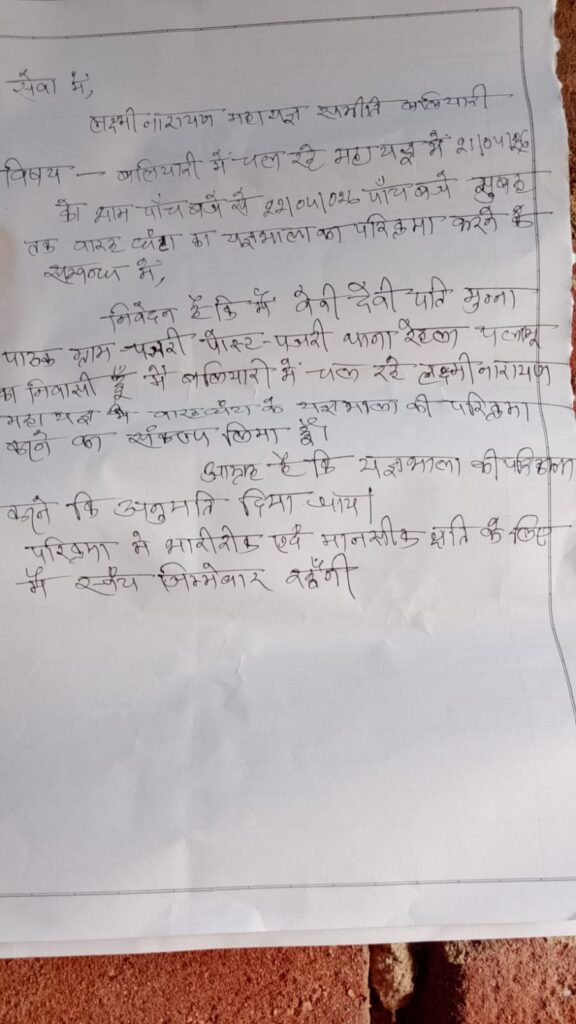 सेवा में,
लक्ष्मी नारायण महायज्ञ समीति बलियारी
विषय — बलियारी में चल रहे महायज्ञ में 21/04/26
को शाम पाँच बजे से 22/04/026 पाँच बजे सुबह
तक बारह घंटा का यज्ञशाला का परिक्रमा करने के
सम्बन्ध में,
निवेदन है कि मैं बेबी देवी पति मुन्ना
पाठक ग्राम-पंजरी पोस्ट-पंजरी थाना रेहला पलामू
का निवासी हूँ मैं बलियारी में चल रहे लक्ष्मी नारायण
महायज्ञ में बारह घंटा के यज्ञशाला की परिक्रमा
करने का संकल्प लिया हूँ।
आग्रह है कि यज्ञशाला की परिक्रमा
करने कि अनुमति दिया जाय।
परिक्रमा मे शारीरीक एवं मानसीक क्षति के लिए
मैं स्वंय जिम्मेवार रहूँगी